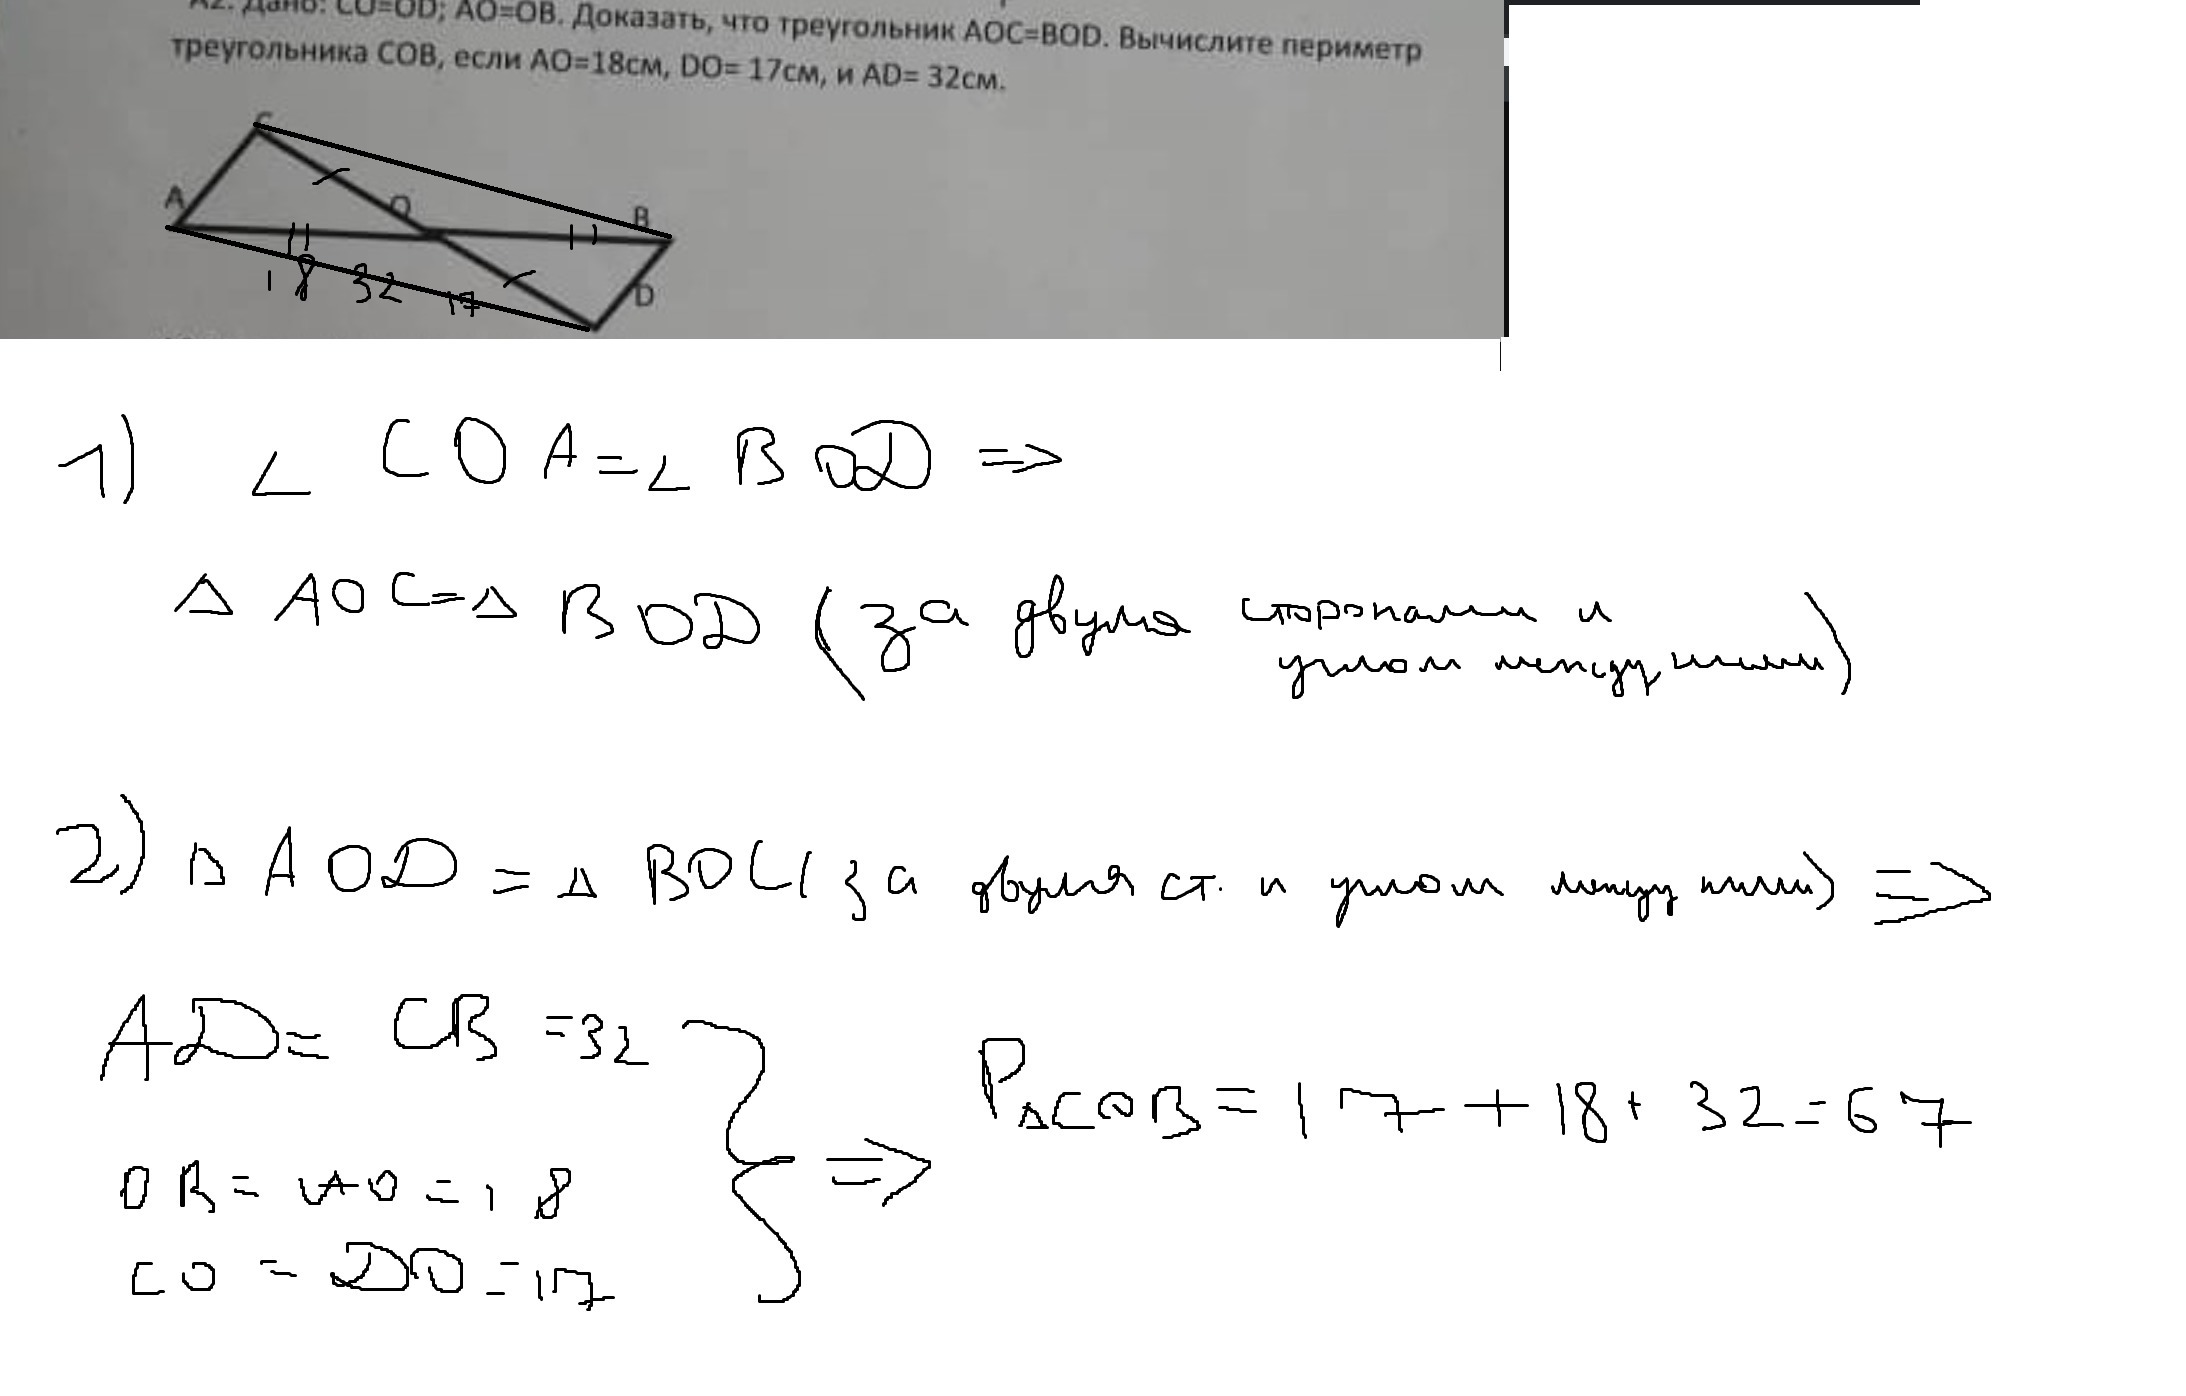 А2. Дано: CO=OD; AO=OB. Доказать, что треугольник AOC=BOD. Вычислите периметр
треугольника COB, если AO=18см, DO= 17см, и AD= 32см.
C
A
O
B
18 32 17
D
1) ∠ COA = ∠ BOD =>
△ AOC = △ BOD (за двумя сторонами и
углом между ними)
2) △ AOD = △ BOC (за двумя ст. и углом между ними) =>
AD = CB = 32
P△COB = 17 + 18 + 32 = 67
OB = AO = 18
=>
CO = DO = 17